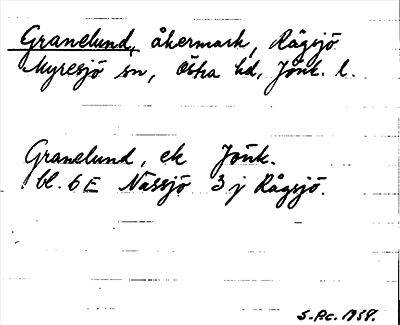 Granelund, åkermark, Rågsjö
Myresjö sn, Östra hd, Jönk. l.
Granelund, ek Jönk.
bl. 6 E Nässjö 3 j Rågsjö.
S.Pc. 1958.